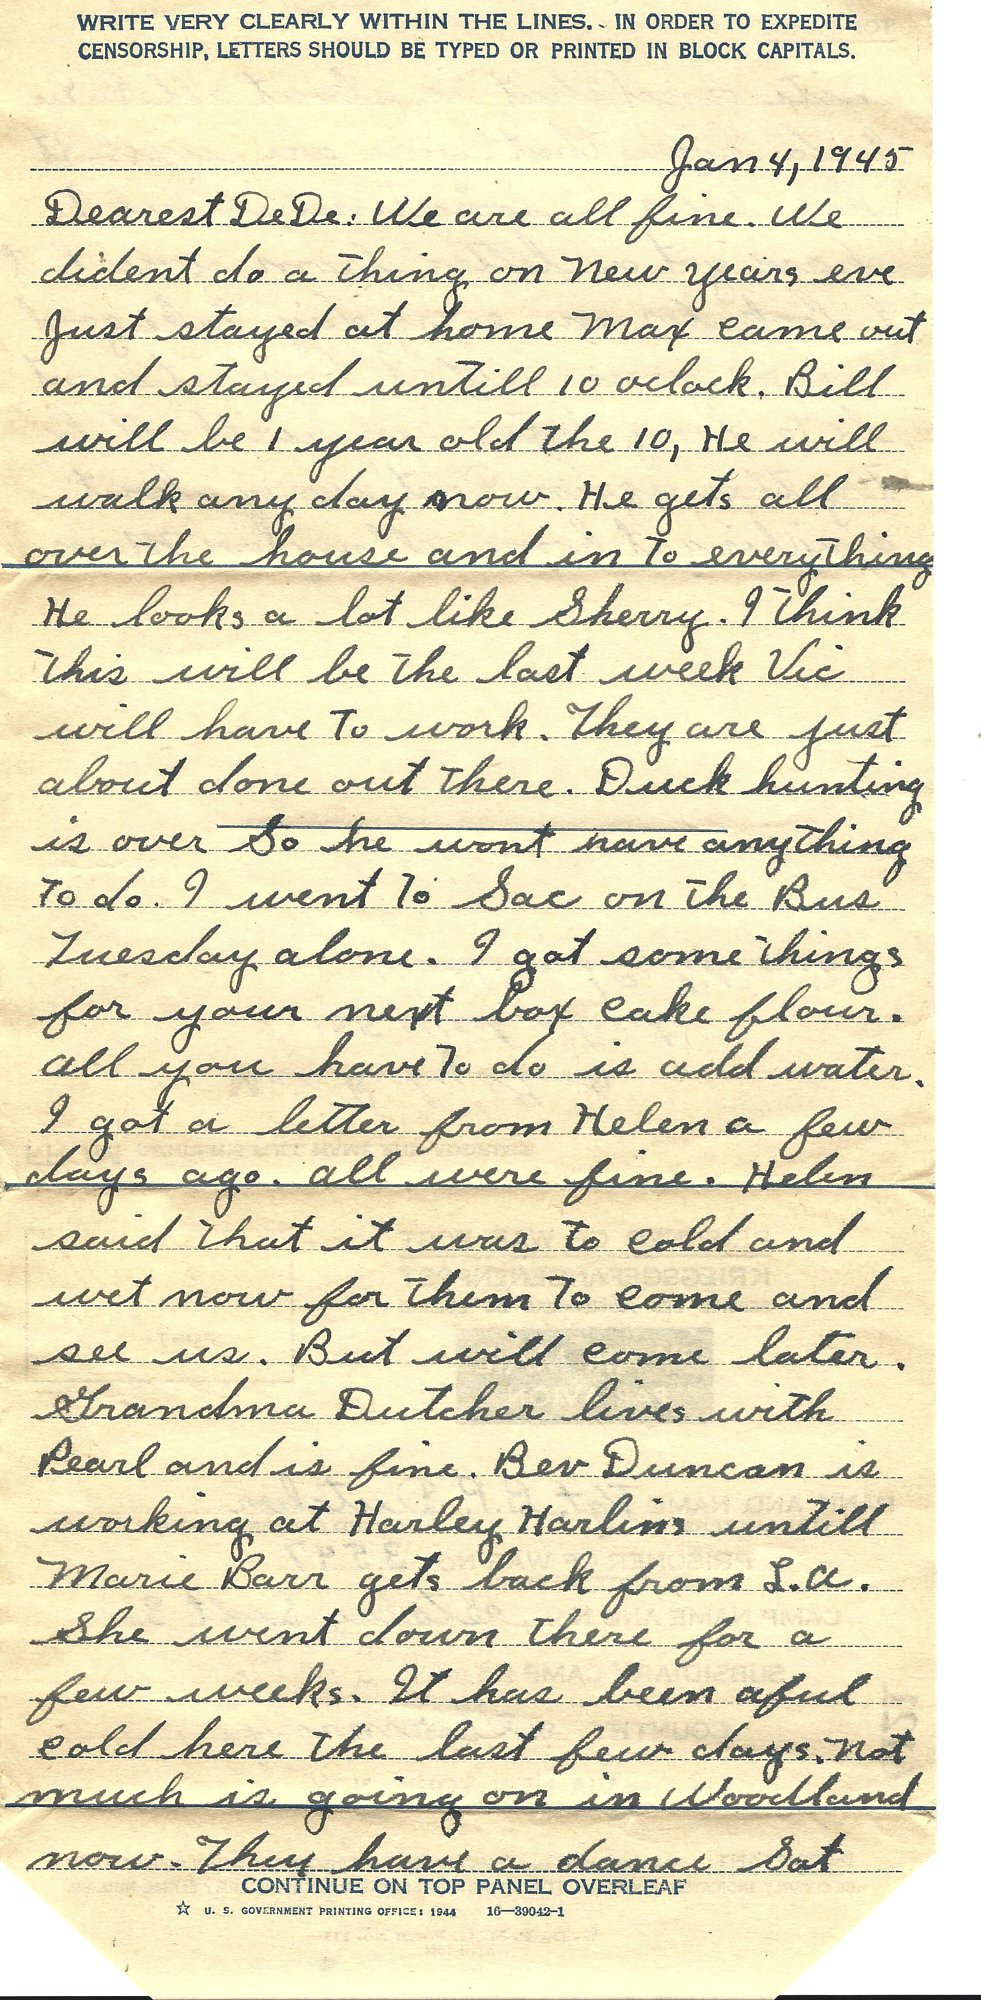 WRITE VERY CLEARLY WITHIN THE LINES. - IN ORDER TO EXPEDITE
CENSORSHIP, LETTERS SHOULD BE TYPED OR PRINTED IN BLOCK CAPITALS.
Jan 4, 1945
Dearest DeDe: We are all fine. We
dident do a thing on New years eve
Just stayed at home Max came out
and stayed untill 10 oclock. Bill
will be 1 year old the 10, He will
walk any day now. He gets all
over the house and in to everything
He looks a lot like Sherry. I think
this will be the last week Vic
will have to work. They are just
about done out there. Duck hunting
is over So he wont have anything
to do. I went to Sac on the Bus
Tuesday alone. I got some things
for your next box cake flour.
all you have to do is add water.
I got a letter from Helen a few
days ago. all were fine. Helen
said that it was to cold and
wet now for them to come and
see us. But will come later.
Grandma Dutcher lives with
Pearl and is fine. Bev Duncan is
working at Harley Harlins untill
Marie Barr gets back from L.A.
She went down there for a
few weeks. It has been aful
cold here the last few days. Not
much is going on in Woodland
now. They have a dance Sat
CONTINUE ON TOP PANEL OVERLEAF
☆ U. S. GOVERNMENT PRINTING OFFICE: 1944 16—39042-1